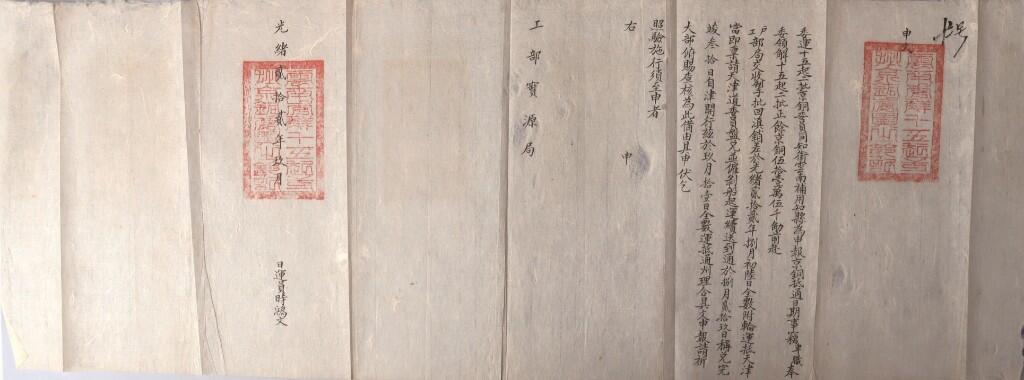 申文
委運十五起二批京銅委員同知銜雲南補用知縣為申報京銅抵通日期事竊卑職奉
委領解十五起二批正餘京銅伍拾壹萬伍千觔前赴
戶工部局交收掣批回滇銷差於光緒貳拾貳年捌月初陸日全數附輪運抵天津
當即稟請天津道委員盤兌並僱剝船起運續送到通於捌月貳拾玖日稱兌完
竣叁拾日自津開行經於玖月拾壹日全數運抵通州理合具文申報請祈
大部俯賜查核為此備由具申伏乞
照驗施行須至申者
右申
工部寶源局
光緒貳拾貳年玖月
日運員時鴻文